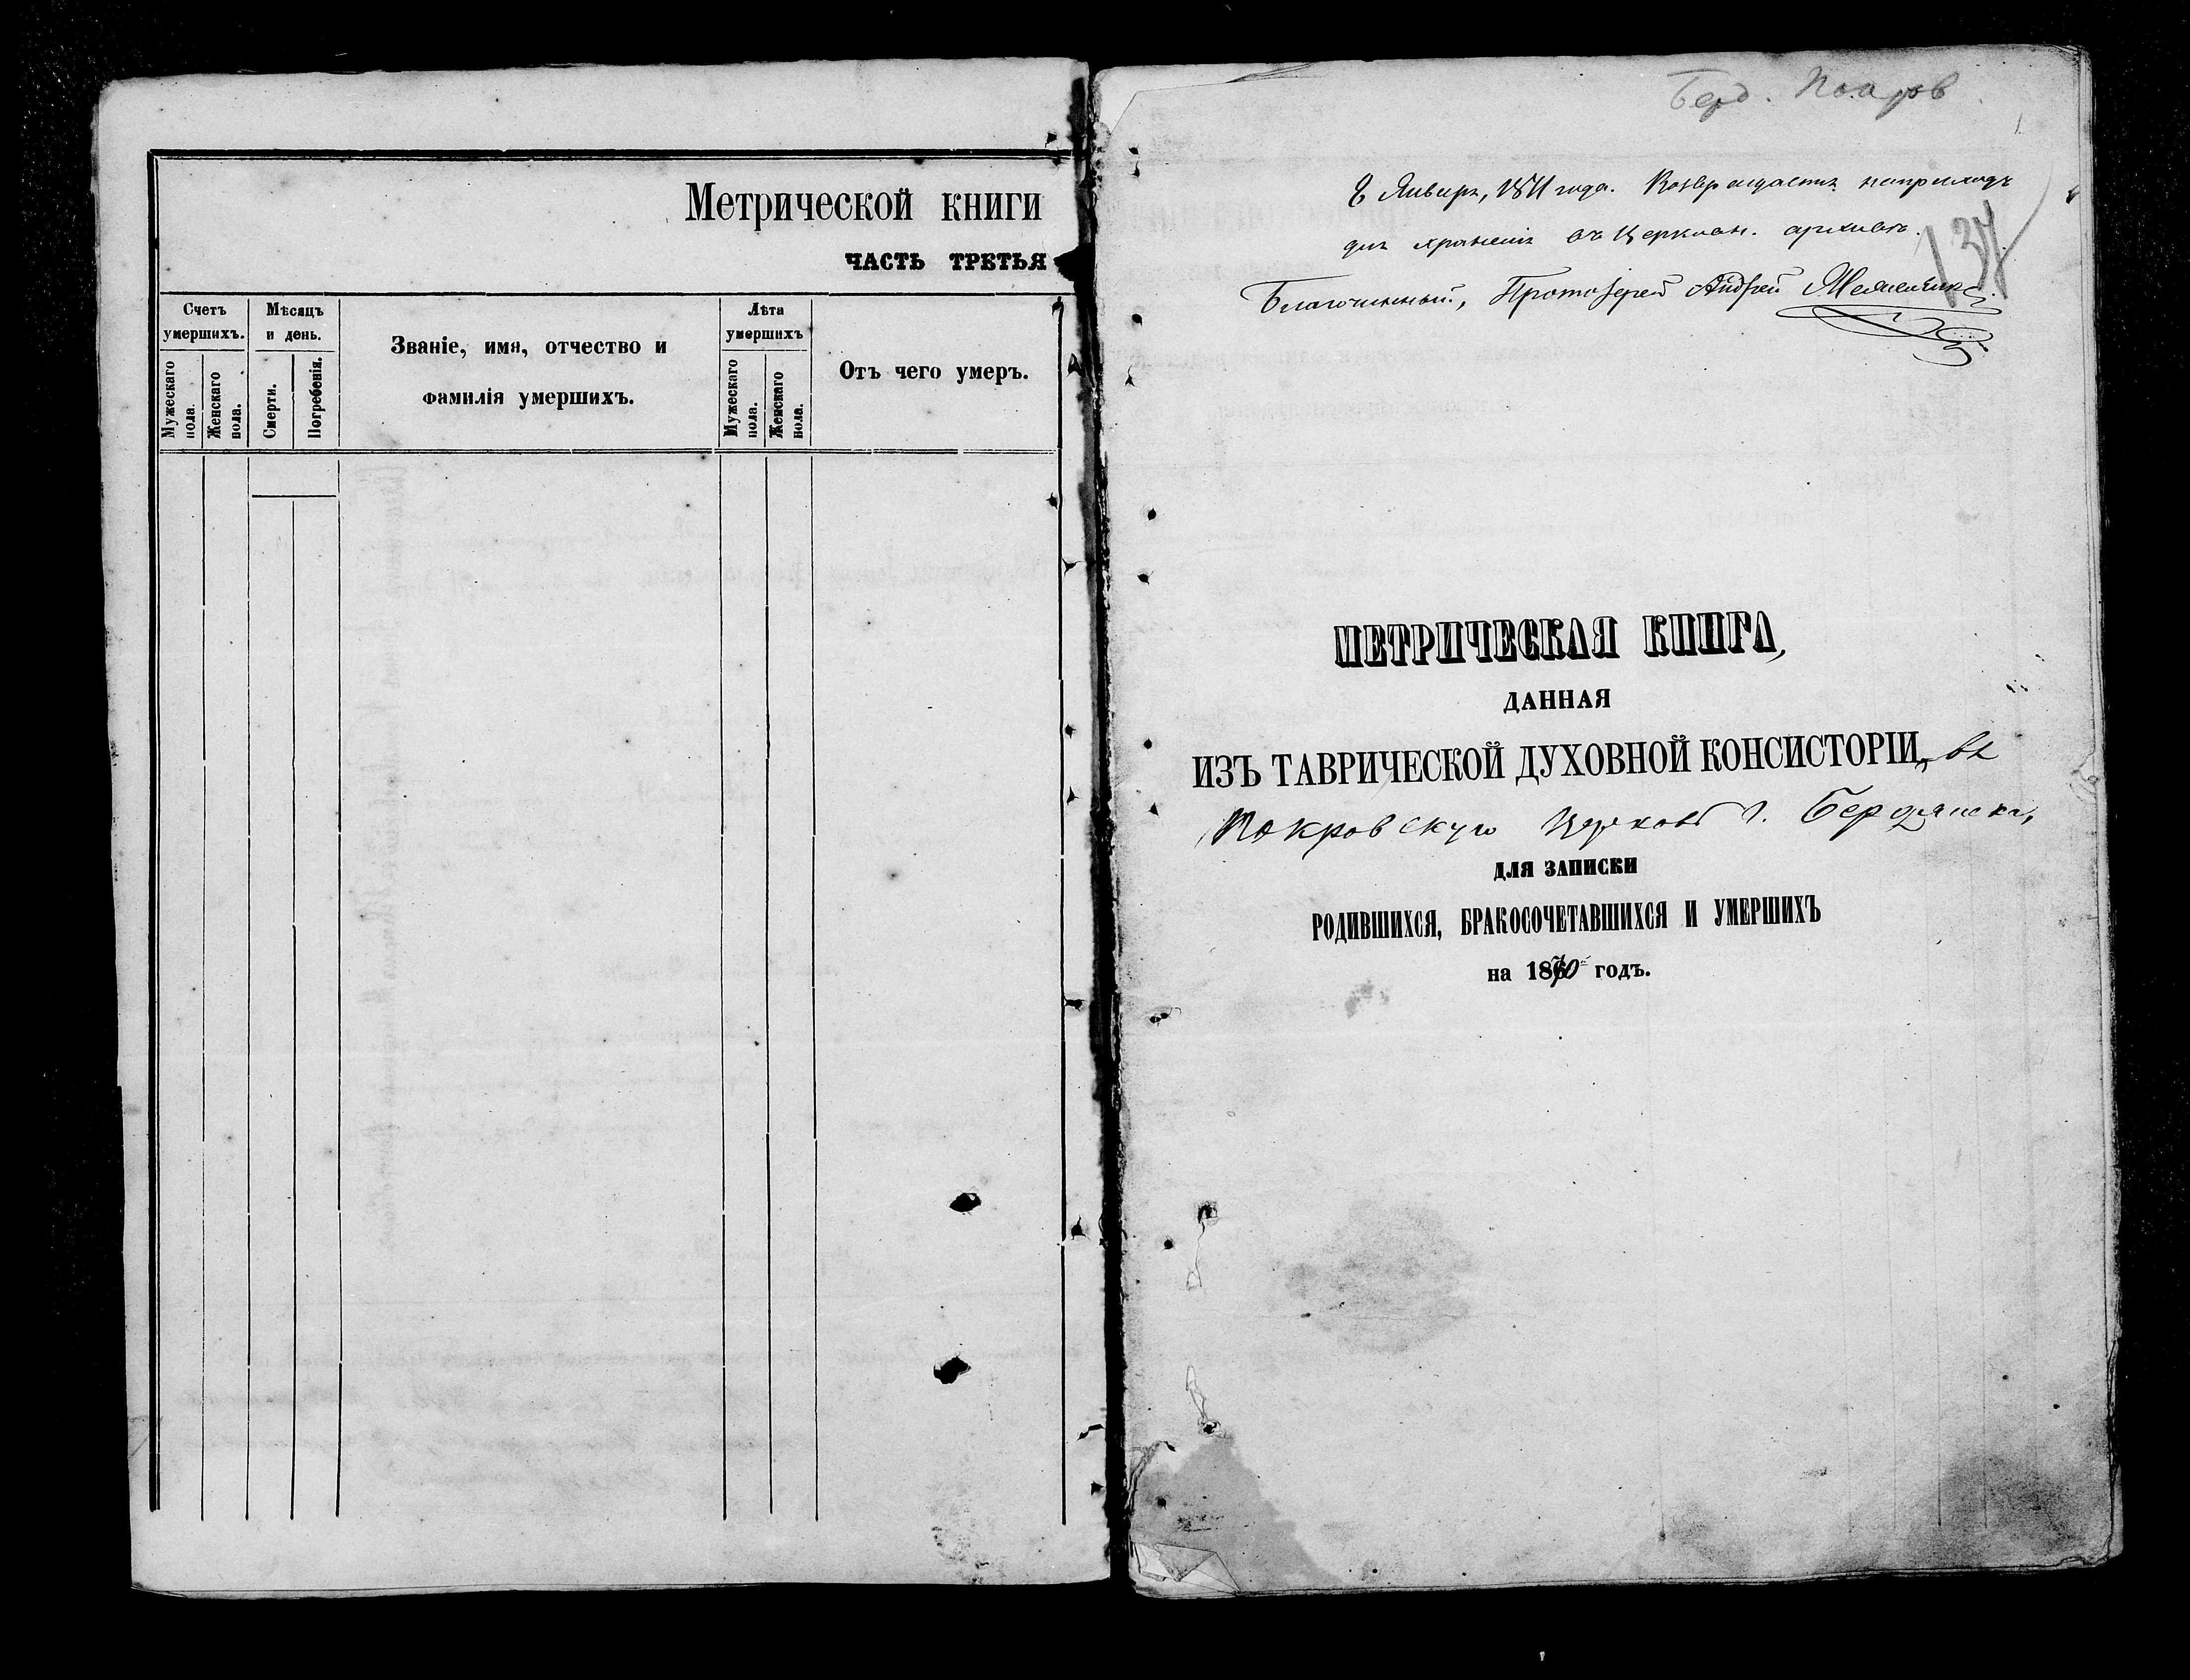 Метрической книги
ЧАСТЬ ТРЕТЬЯ
Счетъ умершихъ.
Мужескаго пола.
Женскаго пола.
Мѣсяцъ и день.
Смерти.
Погребенія.
Званіе, имя, отчество и
фамилія умершихъ.
Лѣта умершихъ
Мужескаго пола.
Женскаго пола.
Отъ чего умеръ.
Берд. Покров
8 Января, 1871 года. Возвращается въ приходъ
для храненія въ Церковн. архивѣ.
137
Благочинный, Протоіерей Андрей
МЕТРИЧЕСКАЯ КНИГА,
ДАННАЯ
ИЗЪ ТАВРИЧЕСКОЙ ДУХОВНОЙ КОНСИСТОРІИ, въ
Покровскую Церковь г. Бердянска,
ДЛЯ ЗАПИСКИ
РОДИВШИХСЯ, БРАКОСОЧЕТАВШИХСЯ И УМЕРШИХЪ
на 1870 годъ.